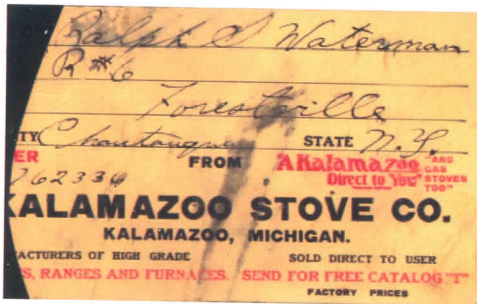 Ralph S Waterman
R #6
Forestville
TY Chautauqua STATE N.Y.
ER FROM A Kalamazoo "AND GAS STOVES TOO"
Direct to You"
762336
KALAMAZOO STOVE CO.
KALAMAZOO, MICHIGAN.
ACTURERS OF HIGH GRADE SOLD DIRECT TO USER
S, RANGES AND FURNACES. SEND FOR FREE CATALOG "T"
FACTORY PRICES